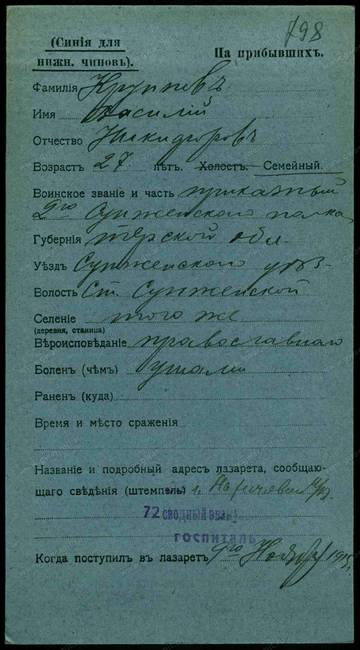 798
(Синія для
нижн. чиновъ).
На прибывшихъ.
Фамилія
Имя Василій
Отчество Никифоровъ
Возрастъ 27 лѣтъ. Холостъ. Семейный.
Воинское званіе и часть приказный
2го Сунженского полка
Губернія Терской обл.
Уѣздъ Сунженского
Волость Ст. Сунженской
Селеніе того же
(деревня, станица)
Вѣроисповѣданіе православнаго
Боленъ (чѣмъ) ушами
Раненъ (куда)
Время и мѣсто сраженія
Названіе и подробный адресъ лазарета, сообщаю-
щаго свѣдѣнія (штемпель) г.
72 СВОДНЫЙ ЭВАК.
ГОСПИТАЛЬ
Когда поступилъ въ лазаретъ 9го Ноября 1915